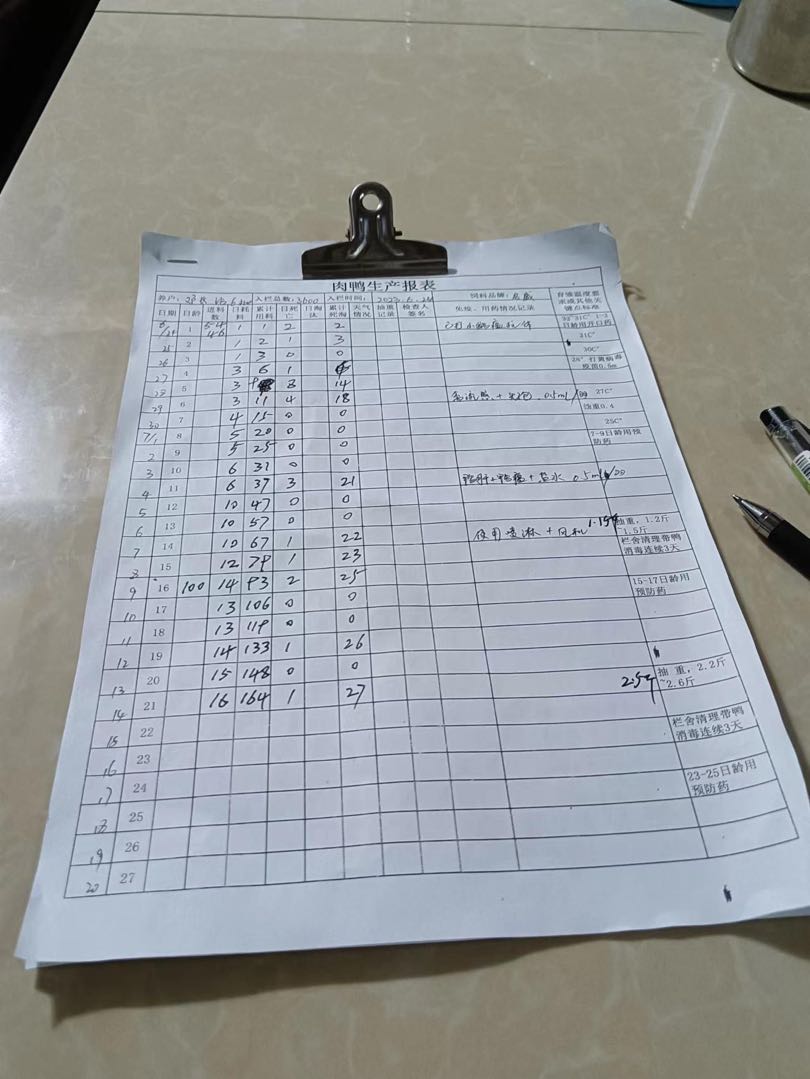 肉鸭生产报表
养户: 入栏总数: 3600 入栏时间: 2023.6.24 饲料品牌: 育雏温度要求或其他关键点标准
日期 日龄 进料数 日耗料 累计用料 日死亡 日淘汰 累计死淘 天气情况 抽重记录 检查人签名 免疫、用药情况记录
6/24 1 54 46 1 1 2 2 32°-31C° 1-3日龄用开口药
25 2 1 2 1 3 31C°
26 3 1 3 0 0 30C°
27 4 3 6 1 28° 打黄病毒疫苗0.5m
28 5 3 9 8 14
29 6 3 11 4 18 0.5ml/ 27C° 抽重0.4
30 7 4 15 0 0 25C°
7/1 8 5 20 0 0 7-9日龄用预防药
2 9 5 25 0 0
3 10 6 31 0 0
4 11 6 37 3 21 0.5ml/
5 12 10 47 0 0
6 13 10 57 0 0 1.15斤 抽重，1.2斤~1.5斤
7 14 10 67 1 22 使用喷淋+风机 栏舍清理带鸭消毒连续3天
8 15 12 79 1 23
9 16 100 14 93 2 25 15-17日龄用预防药
10 17 13 106 0 0
11 18 13 119 0 0
12 19 14 133 1 26
13 20 15 148 0 0 2.5斤 抽重，2.2斤~2.6斤
14 21 16 164 1 27
15 22 栏舍清理带鸭消毒连续3天
16 23
17 24 23-25日龄用预防药
18 25
19 26
20 27